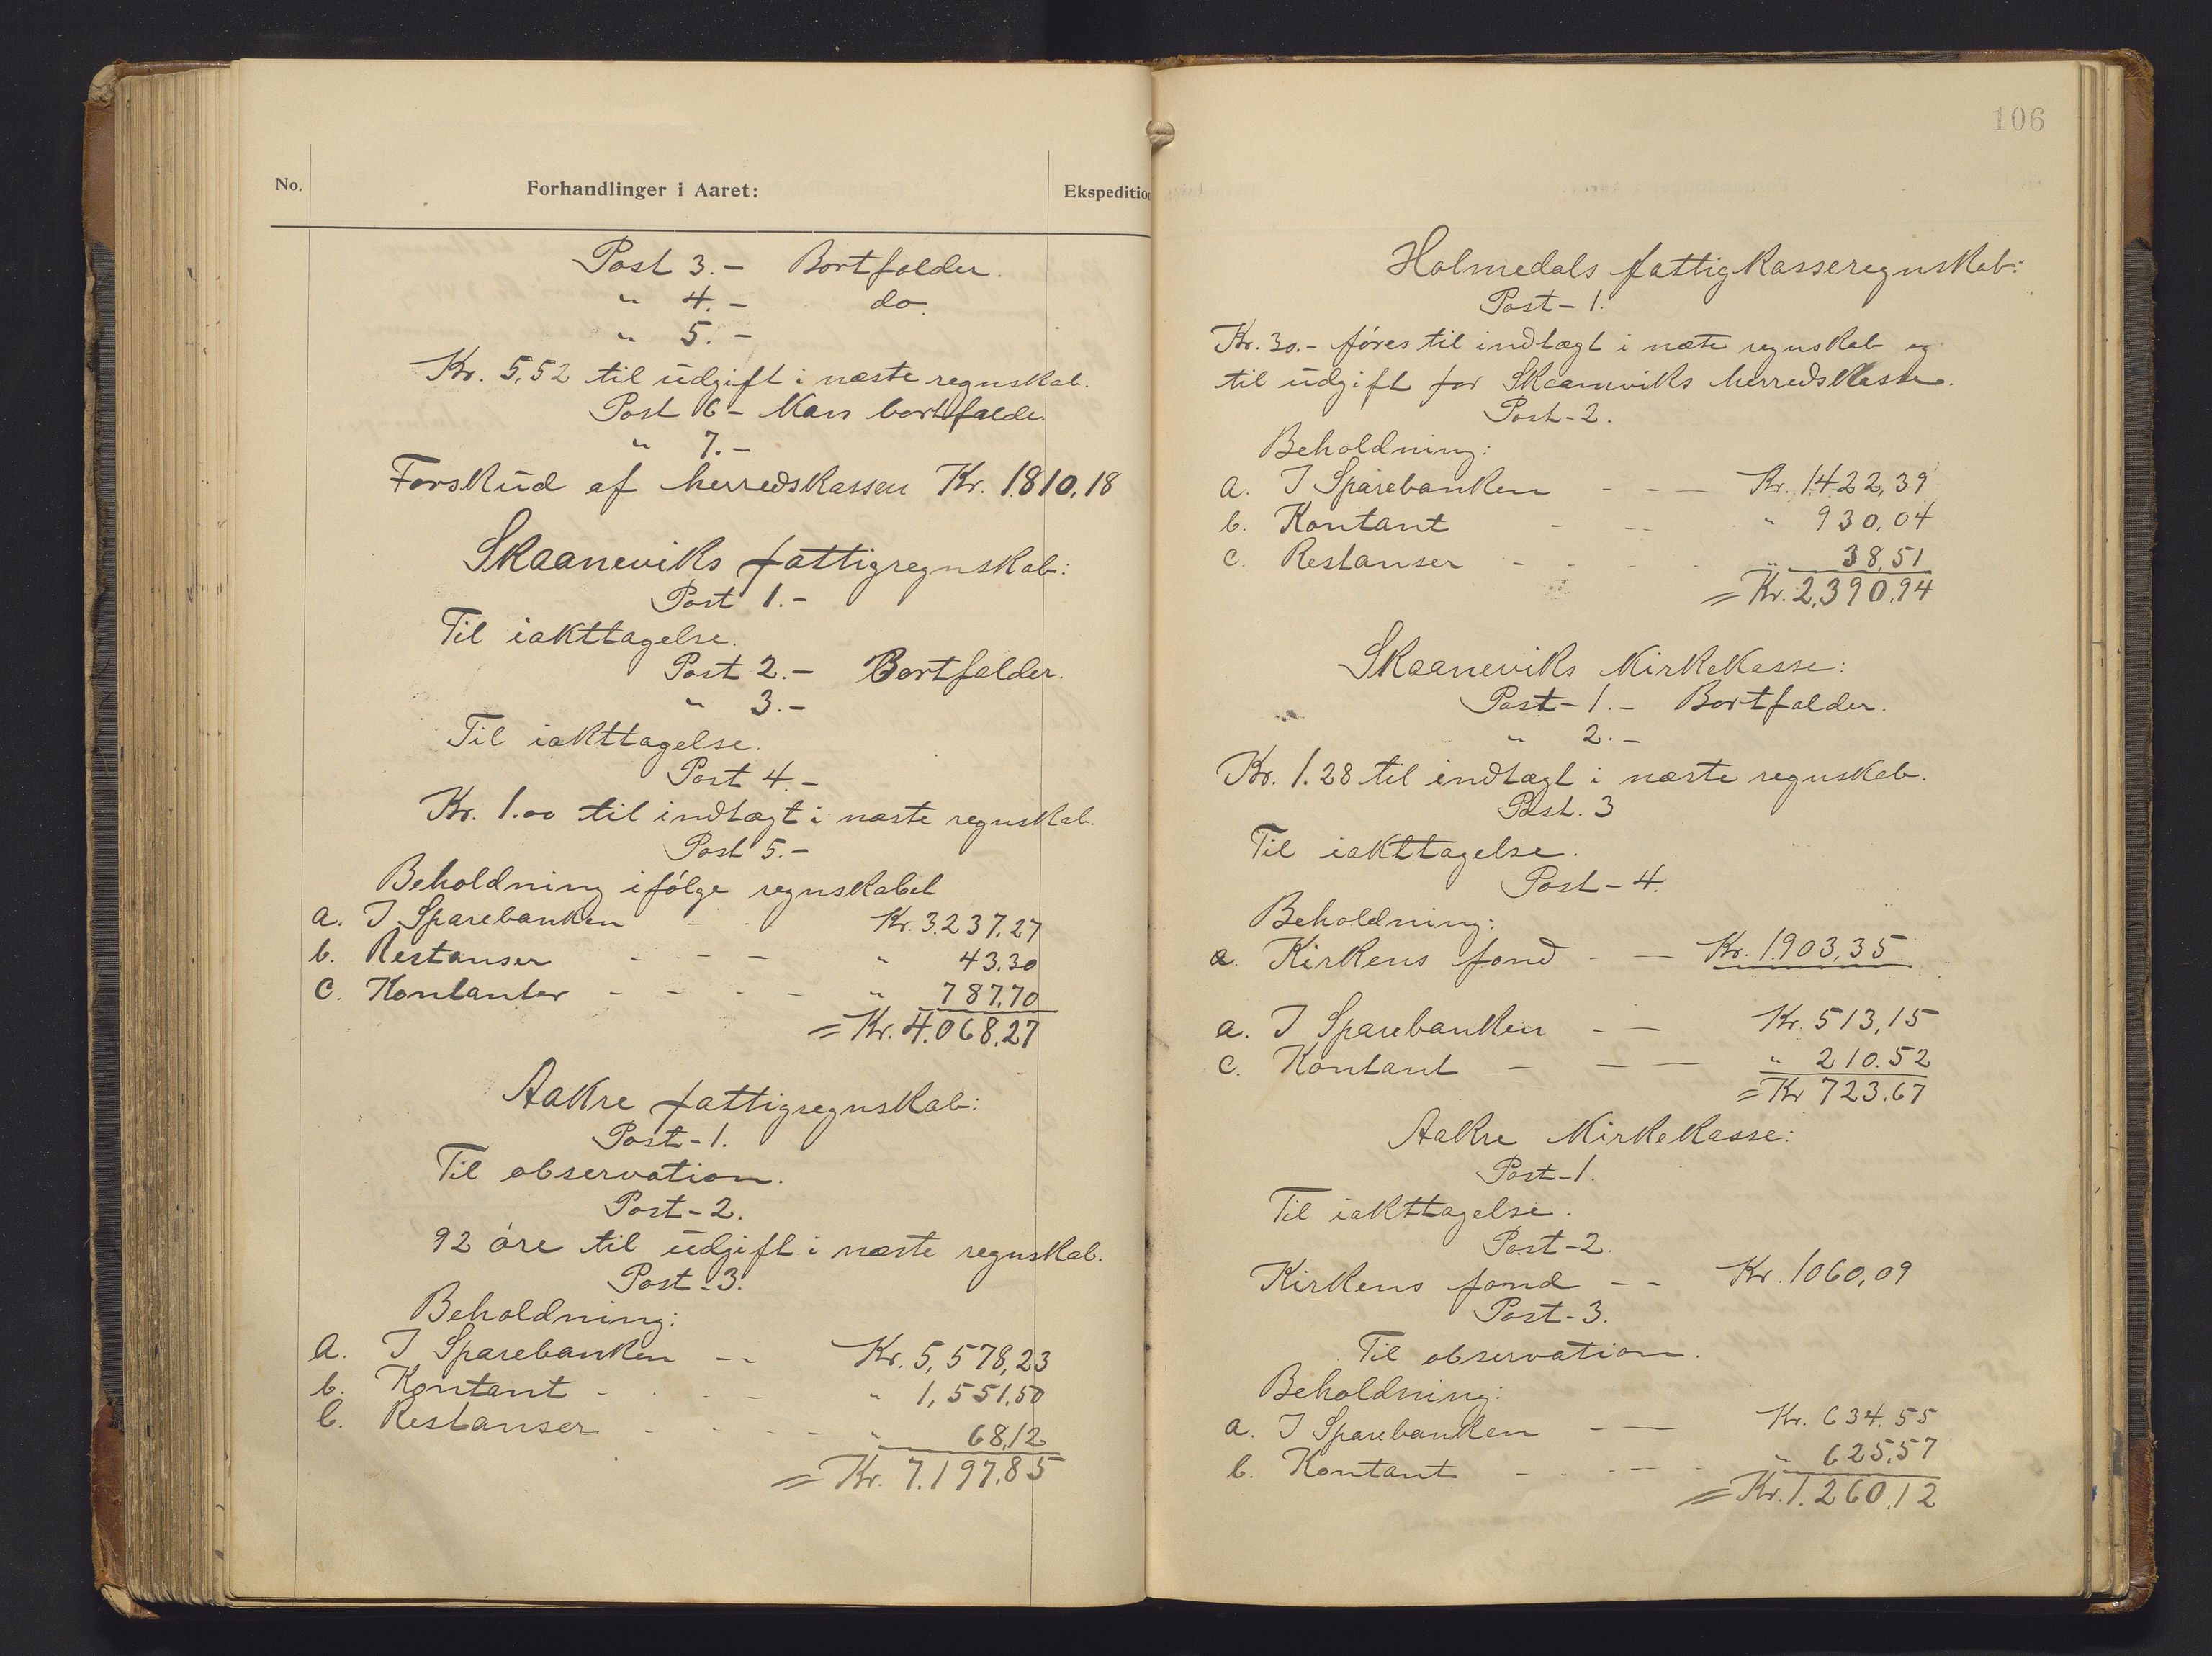 No. Forhandlinger i Aaret: Ekspedition
Post 3.- Bortfalder.
" 4.- do.
" 5.-
Kr. 5,52 til udgift i næste regnskab.
Post 6 - Kan bortfalde.
" 7.-
Forskud af herredskassen Kr. 1810,18
Skaaneviks fattigregnskab:
Post 1.-
Til iakttagelse.
Post 2.- Bortfalder.
" 3.-
Til iakttagelse.
Post 4.-
Kr. 1.00 til indtægt i næste regnskab.
Post 5.-
Beholdning ifølge regnskabet
a. I Sparebanken - - Kr. 3.237,27
b. Restanser - - - " 43,30
c. Kontanter - - - - " 787,70
= Kr. 4.068,27
Aakre fattigregnskab:
Post - 1.
Til observation.
Post - 2.
92 øre til udgift i næste regnskab.
Post - 3.
Beholdning:
a. I Sparebanken - - Kr. 5,578,23
b. Kontant - - - - " 1,551,50
c. Restanser - - - - " 68,12
= Kr. 7.197,85
106
Holmedals fattigkasseregnskab:
Post - 1.
Kr. 30.- føres til indtægt i næte regnskab og
til udgift for Skaaneviks herredskasse.
Post - 2.
Beholdning:
a. I Sparebanken - - - Kr. 1422,39
b. Kontant - - - " 930,04
c. Restanser - - - - " 38,51
= Kr. 2,390,94
Skaaneviks Kirkekasse:
Post - 1.- Bortfalder.
" 2.-
Kr. 1.28 til indtægt i næste regnskab.
Post. 3
Til iakttagelse.
Post - 4.
Beholdning:
a. Kirkens fond - - Kr. 1903,35
a. I Sparebanken - - Kr. 513,15
c. Kontant - - - " 210.52
= Kr 723.67
Aakre Kirkekasse:
Post - 1.
Til iakttagelse.
Post - 2.
Kirkens fond - - Kr. 1060,09
Post - 3.
Til observation.
Beholdning:
a. I Sparebanken - - Kr. 634.55
b. Kontant - - - - " 625,57
= Kr. 1.260,12